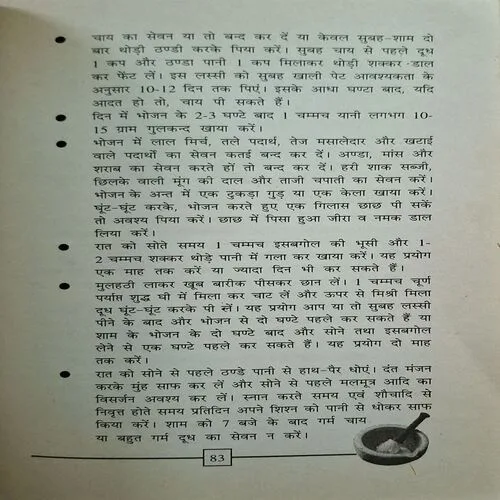 चाय का सेवन या तो बन्द कर दें या केवल सुबह-शाम दो
बार थोड़ी ठण्डी करके पिया करें। सुबह चाय से पहले दूध
1 कप और ठण्डा पानी 1 कप मिलाकर थोड़ी शक्कर डाल
कर फेंट लें। इस लस्सी को सुबह खाली पेट आवश्यकता के
अनुसार 10-12 दिन तक पिएं। इसके आधा घण्टा बाद, यदि
आदत हो तो, चाय पी सकते हैं।
दिन में भोजन के 2-3 घण्टे बाद 1 चम्मच यानी लगभग 10-
15 ग्राम गुलकन्द खाया करें।
भोजन में लाल मिर्च, तले पदार्थ, तेज मसालेदार और खटाई
वाले पदार्थों का सेवन कतई बन्द कर दें। अण्डा, मांस और
शराब का सेवन करते हों तो बन्द कर दें। हरी शाक सब्जी,
छिलके वाली मूंग की दाल और ताजी चपाती का सेवन करें।
भोजन के अन्त में एक टुकड़ा गुड़ या एक केला खाया करें।
घूंट-घूंट करके, भोजन करते हुए एक गिलास छाछ पी सकें
तो अवश्य पिया करें। छाछ में पिसा हुआ जीरा व नमक डाल
लिया करें।
रात को सोते समय 1 चम्मच इसबगोल की भूसी और 1-
2 चम्मच शक्कर थोड़े पानी में गला कर खाया करें। यह प्रयोग
एक माह तक करें या ज्यादा दिन भी कर सकते हैं।
मुलहठी लाकर खूब बारीक पीसकर छान लें। 1 चम्मच चूर्ण
पर्याप्त शुद्ध घी में मिला कर चाट लें और ऊपर से मिश्री मिला
दूध घूंट-घूंट करके पी लें। यह प्रयोग आप या तो सुबह लस्सी
पीने के बाद और भोजन से दो घण्टे पहले कर सकते हैं या
शाम के भोजन के दो घण्टे बाद और सोने तथा इसबगोल
लेने से एक घण्टे पहले कर सकते हैं। यह प्रयोग दो माह
तक करें।
रात को सोने से पहले ठण्डे पानी से हाथ-पैर धोएं। दंत मंजन
करके मुंह साफ कर लें और सोने से पहले मलमूत्र आदि का
विसर्जन अवश्य कर लें। स्नान करते समय एवं शौचादि से
निवृत्त होते समय प्रतिदिन अपने शिश्न को पानी से धोकर साफ
किया करें। शाम को 7 बजे के बाद गर्म चाय
या बहुत गर्म दूध का सेवन न करें।
83